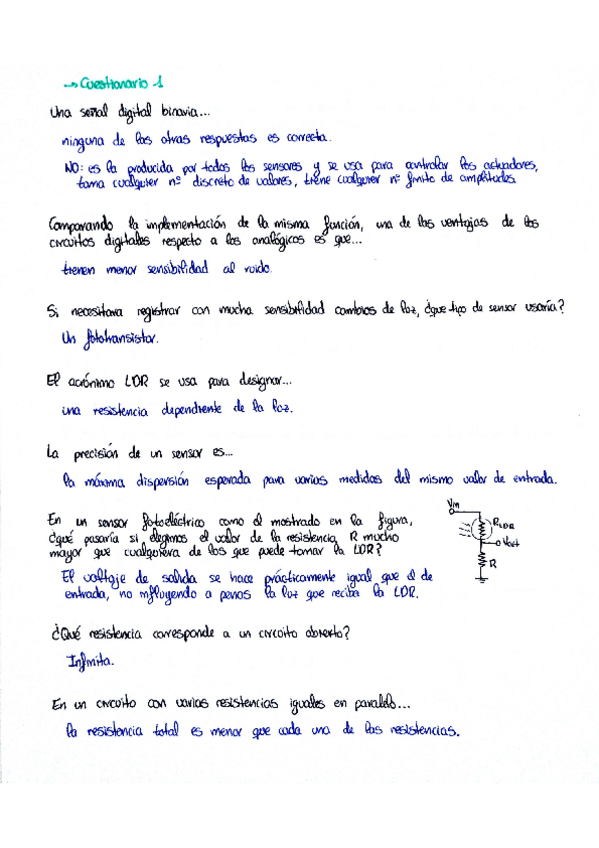 → Cuestionario 1
Una señal digital binaria...
ninguna de las otras respuestas es correcta.
NO: es la producida por todos los sensores, y se usa para controlar los actuadores,
toma cualquier nº discreto de valores, tiene cualquier nº finito de amplitudes.
Comparando la implementación de la misma función, una de las ventajas de los
circuitos digitales respecto a los analógicos es que...
tienen menor sensibilidad al ruido.
Si necesitara registrar con mucha sensibilidad cambios de luz, ¿que tipo de sensor usaría?
Un fototransistor.
El acrónimo LDR se usa para designar...
una resistencia dependiente de la luz.
La precisión de un sensor es...
la máxima dispersión esperada para varias medidas del mismo valor de entrada.
En un sensor fotoeléctrico como el mostrado en la figura,
¿qué pasaría si elegimos el valor de la resistencia R mucho
mayor que cualquiera de los que puede tomar la LDR?
Vin
RLDR
Vout
R
El voltaje de salida se hace prácticamente igual que el de
entrada, no influyendo a penas la luz que reciba la LDR.
¿Qué resistencia corresponde a un circuito abierto?
Infinita.
En un circuito con varias resistencias iguales en paralelo...
la resistencia total es menor que cada una de las resistencias.